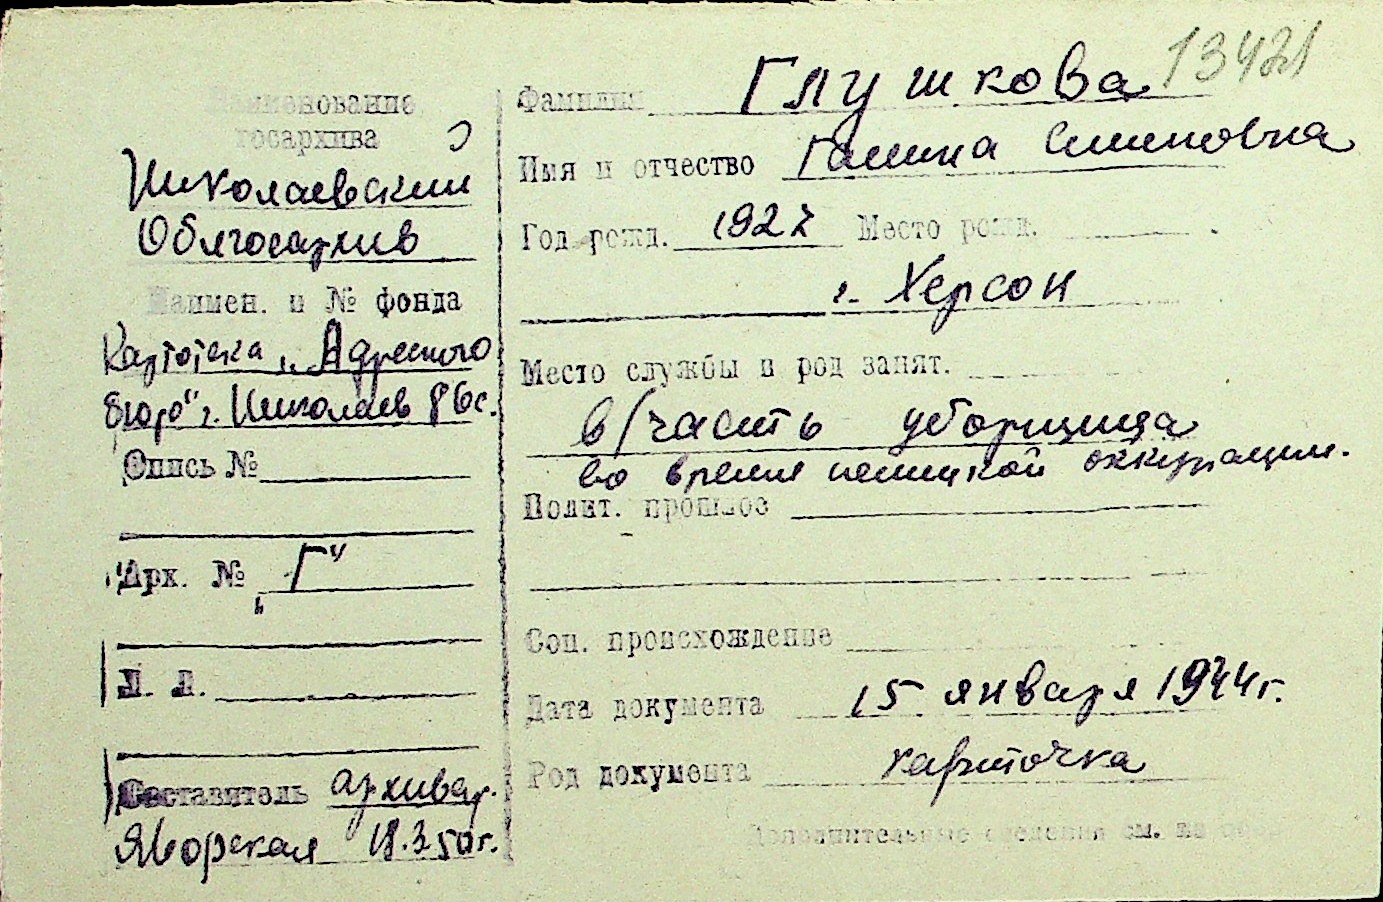 13421
Наименование
госархива
Николаевский
Облгосархив
Наимен. и № фонда
Картотека „Адресного
бюро" г. Николаев
Опись №
Арх. № „Г"
Л. Л.
Составитель архивар.
Яворская 18.3.50г.
Фамилия Глушкова
Имя и отчество Галина Семеновна
Год рожд. 1927 Место рожд.
г. Херсон
Место службы и род занят.
в/часть уборщица
во время немецкой оккупации.
Полит. прошлое
Соц. происхождение
Дата документа 15 января 1944г.
Род документа карточка
Дополнительные сведения см. на обор.